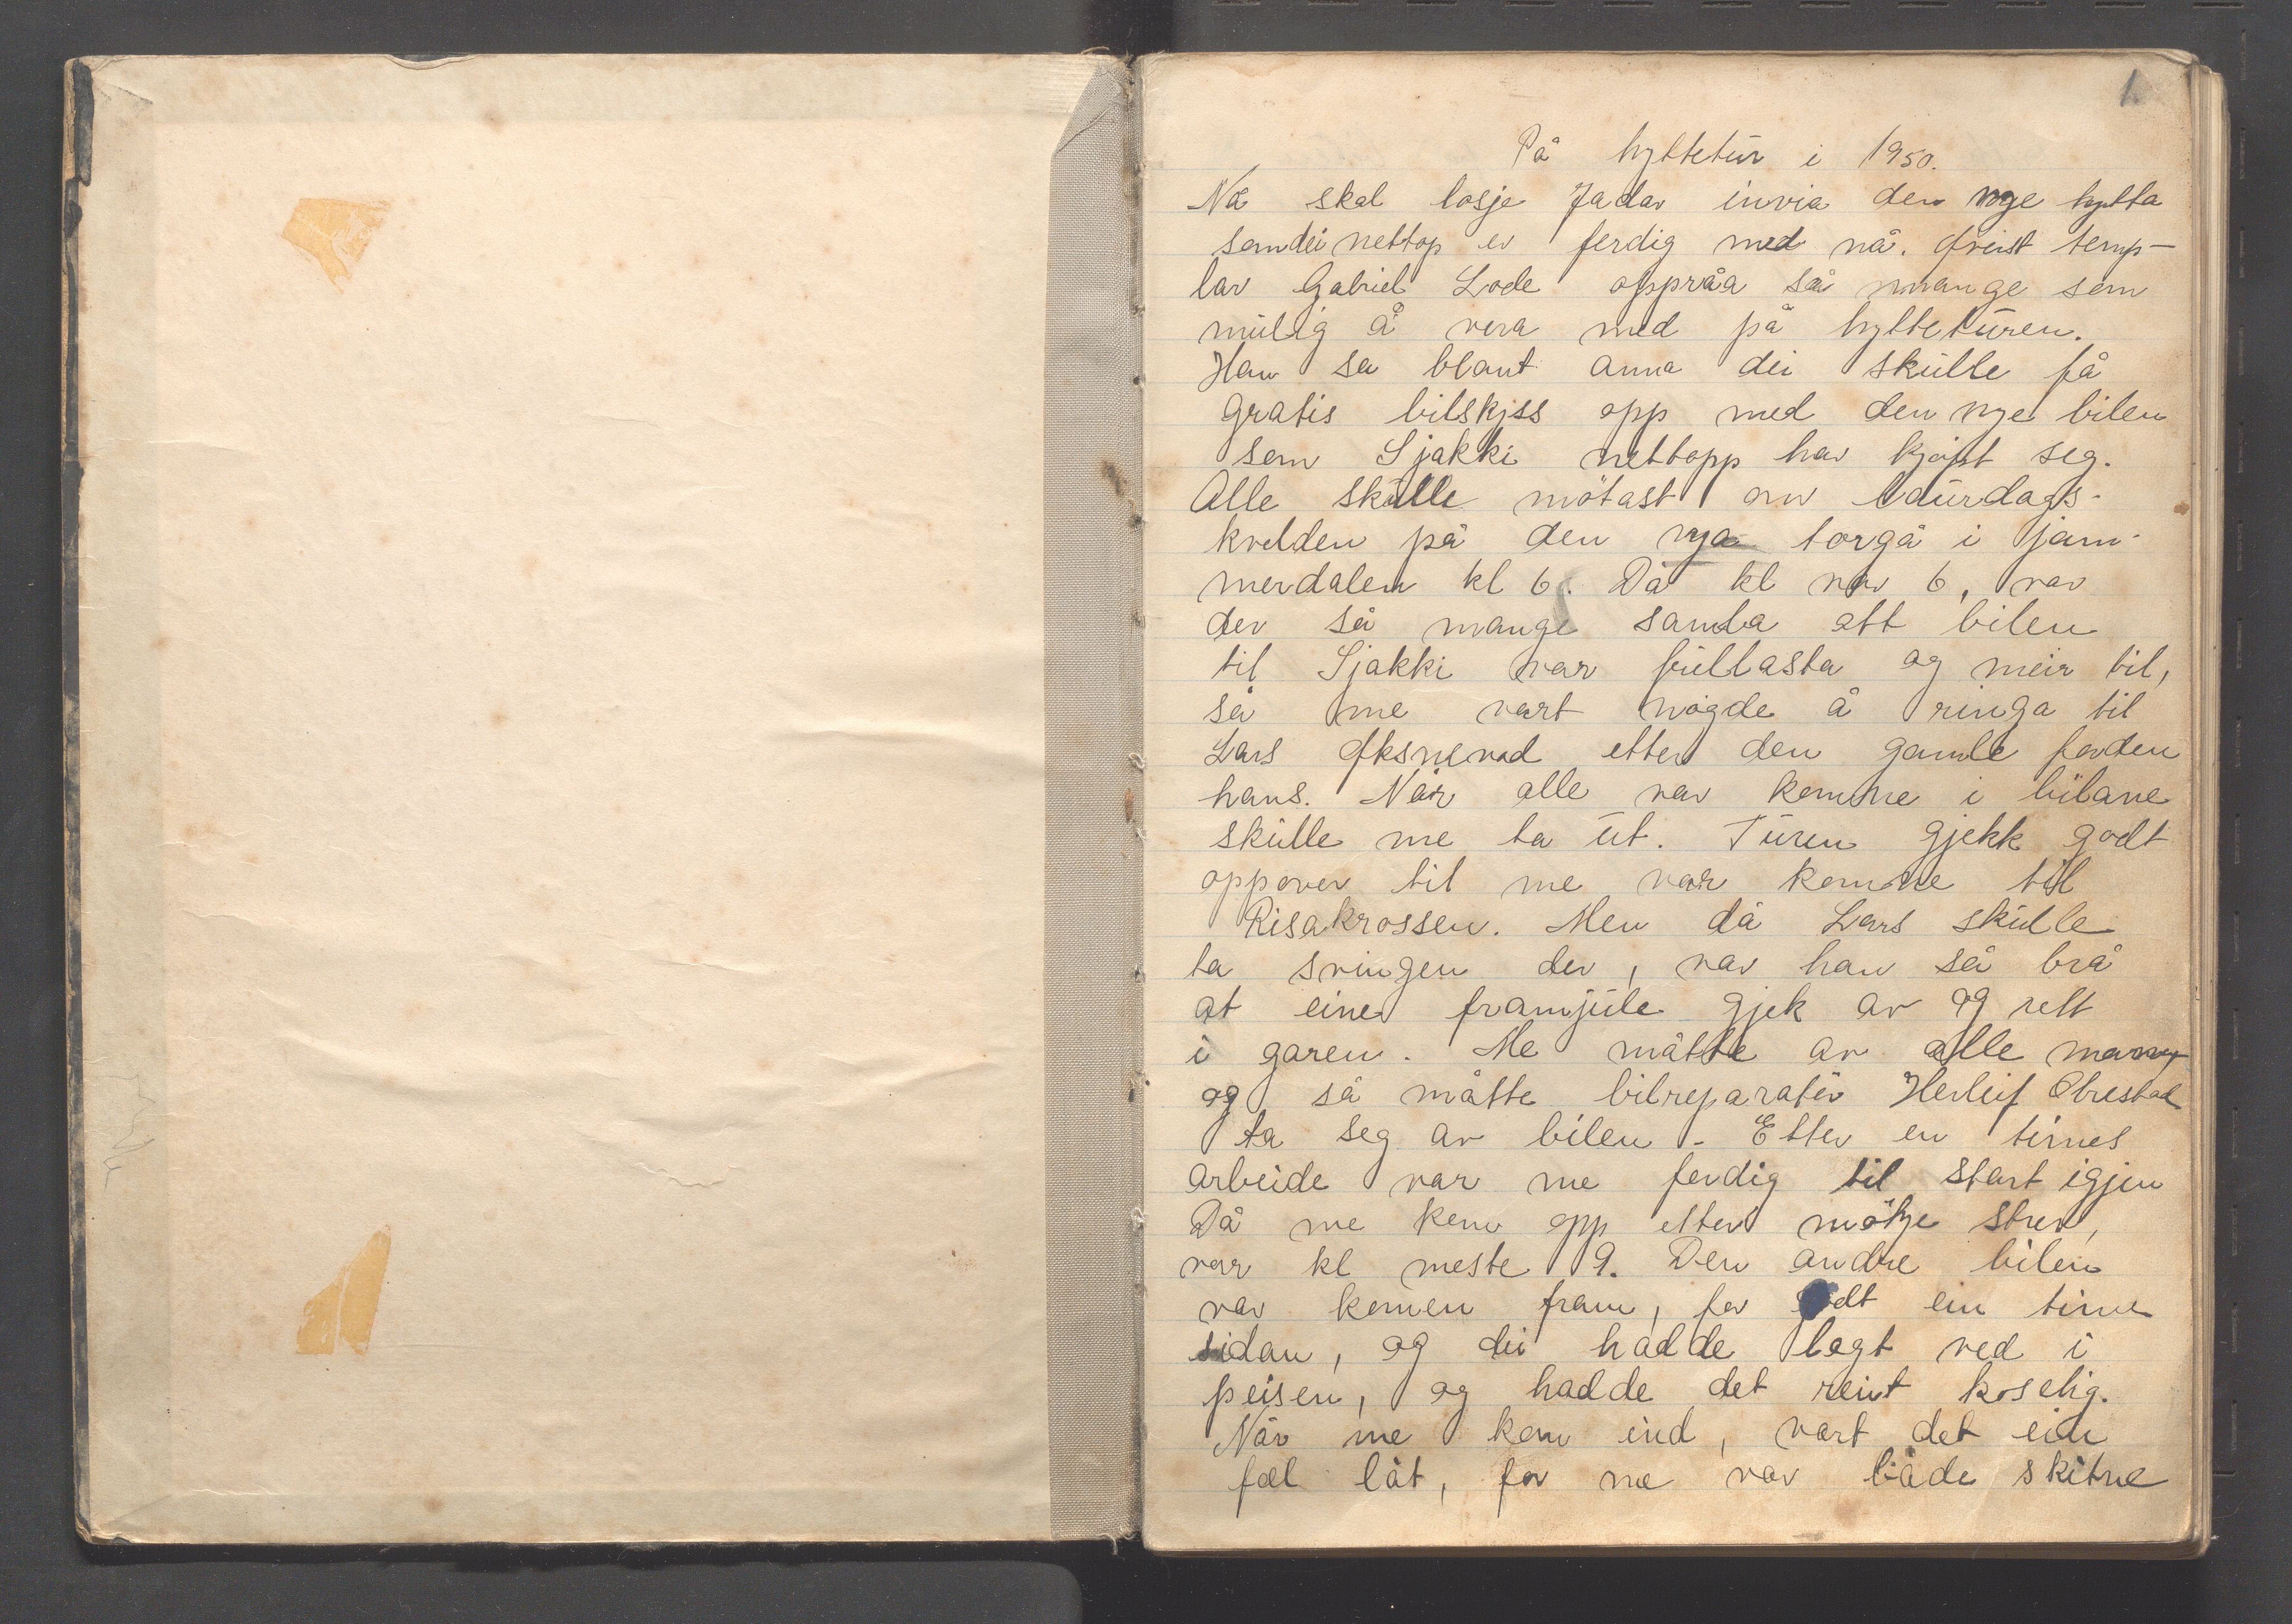 1.
På hyttetur i 1950.
Nå skal losje Jadar invia den nye hytta
som dei nettop er ferdig med nå. Øverst temp-
lar Gabriel Lode oppråa så mange som
mulig å vera med på hytteturen.
Han sa blant anna dei skulle få
gratis bilskjss opp med den nye bilen
som Sjakki nettopp har kjøpt seg.
Alle skulle møtast om laurdags-
kvelden på den nya torgå i jam-
merdalen kl 6. Då kl var 6, var
der så mange samla att bilen
til Sjakki var fullasta og meir til,
så me vart nøgde å ringa til
Lars Øksnevad etter den gamle forden
hans. Når alle var komme i bilane
skulle me ta ut. Turen gjekk godt
oppover til me var komme til
Risakrossen. Men då Lars skulle
ta svingen der, var han så brå
at eine framjule gjek av og rett
i garen. Me måtte av alle mann
og så måtte bilreparatør Herleif Obrestad
ta seg av bilen. Etter en times
arbeide var me ferdig til start igjen
Då me kom opp etter møkje strev,
var kl meste 9. Den andre bilen
var komen fram, for godt ein time
sidan, og dei hadde lagt ved i
peisen, og hadde det reint koselig.
Når me kom ind, vart det ein
fæl låt, for me var både skitne